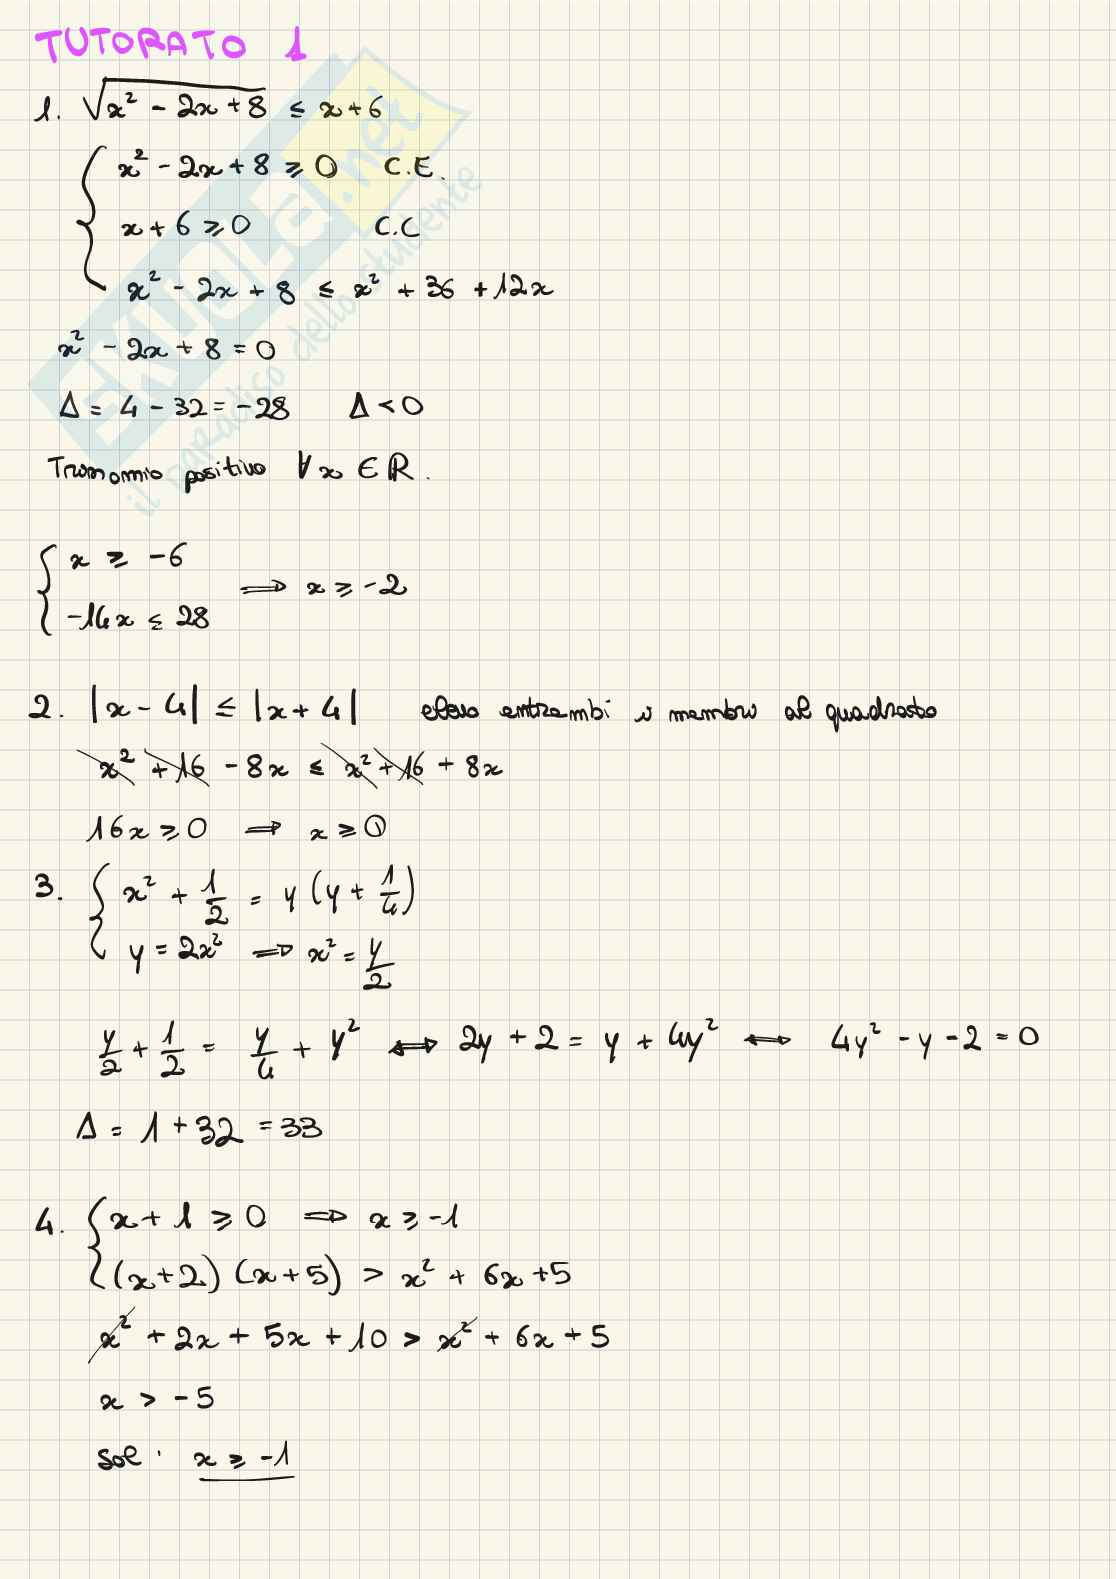 TUTORATO 1
1. √(x² - 2x + 8) ≤ x + 6
{ x² - 2x + 8 ≥ 0 C.E.
x + 6 ≥ 0 C.C
x² - 2x + 8 ≤ x² + 36 + 12x
x² - 2x + 8 = 0
Δ = 4 - 32 = -28 Δ < 0
Trinomio positivo ∀x ∈ R.
{ x ≥ -6
-14x ≤ 28 ⟹ x ≥ -2
2. |x - 4| ≤ |x + 4| elevo entrambi i membri al quadrato
x² + 16 - 8x ≤ x² + 16 + 8x
16x ≥ 0 ⟹ x ≥ 0
3. { x² + 1/2 = y (y + 1/4)
y = 2x² ⟹ x² = y/2
y/2 + 1/2 = y/4 + y² ⟺ 2y + 2 = y + 4y² ⟺ 4y² - y - 2 = 0
Δ = 1 + 32 = 33
4. { x + 1 ≥ 0 ⟹ x ≥ -1
(x+2) (x+5) > x² + 6x + 5
x² + 2x + 5x + 10 > x² + 6x + 5
x > -5
sol: x ≥ -1
SKUOLA.net
il paradiso dello studente